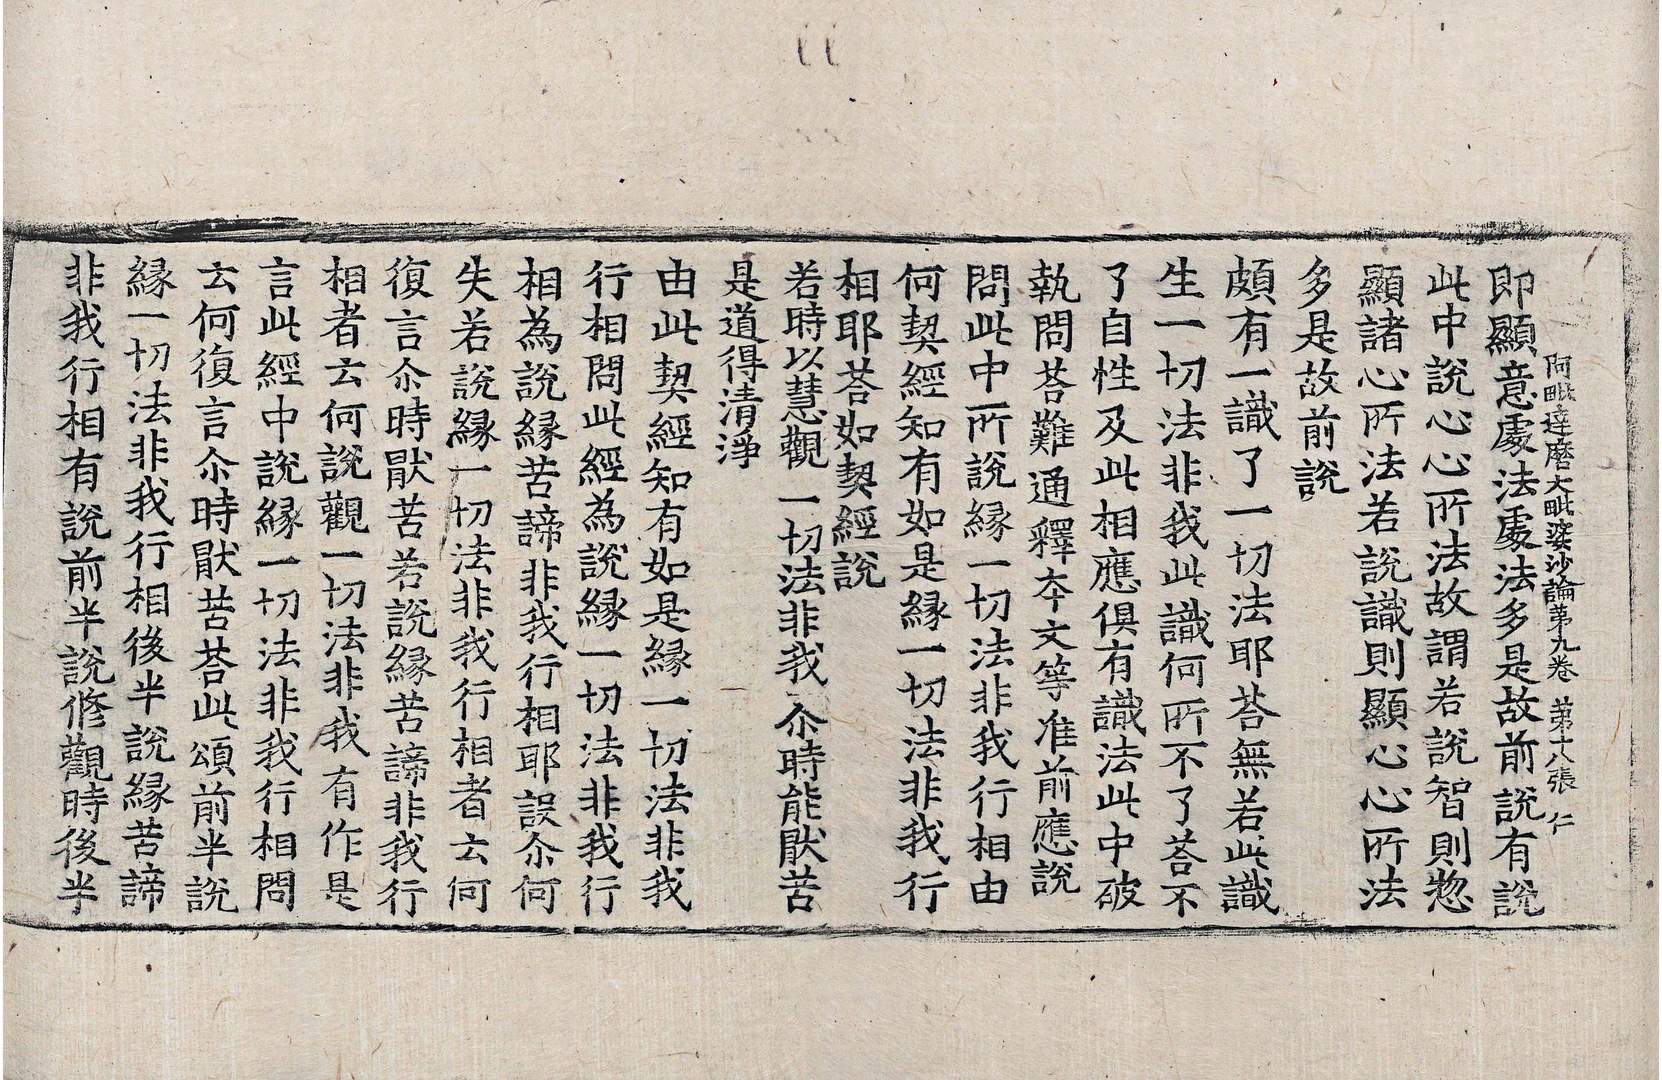 阿毗達磨大毗婆沙論第九卷　第十八張　仁
即顯意處法處法多是故前說有說
此中說心心所法故謂若說智則惣
顯諸心所法若說識則顯心心所法
多是故前說
頗有一識了一切法耶荅無若此識
生一切法非我此識何所不了荅不
了自性及此相應俱有識法此中破
執問荅難通釋本文等准前應說
問此中所說縁一切法非我行相由
何契經知有如是縁一切法非我行
相耶荅如契經說
若時以慧觀一切法非我尒時能猒苦
是道得清淨
由此契經知有如是縁一切法非我
行相問此經為說縁一切法非我行
相為說縁苦諦非我行相耶設尒何
失若說縁一切法非我行相者云何
復言尒時猒苦若說縁苦諦非我行
相者云何說觀一切法非我有作是
言此經中說縁一切法非我行相問
云何復言尒時猒苦荅此頌前半說
縁一切法非我行相後半說縁苦諦
非我行相有說前半說修觀時後半